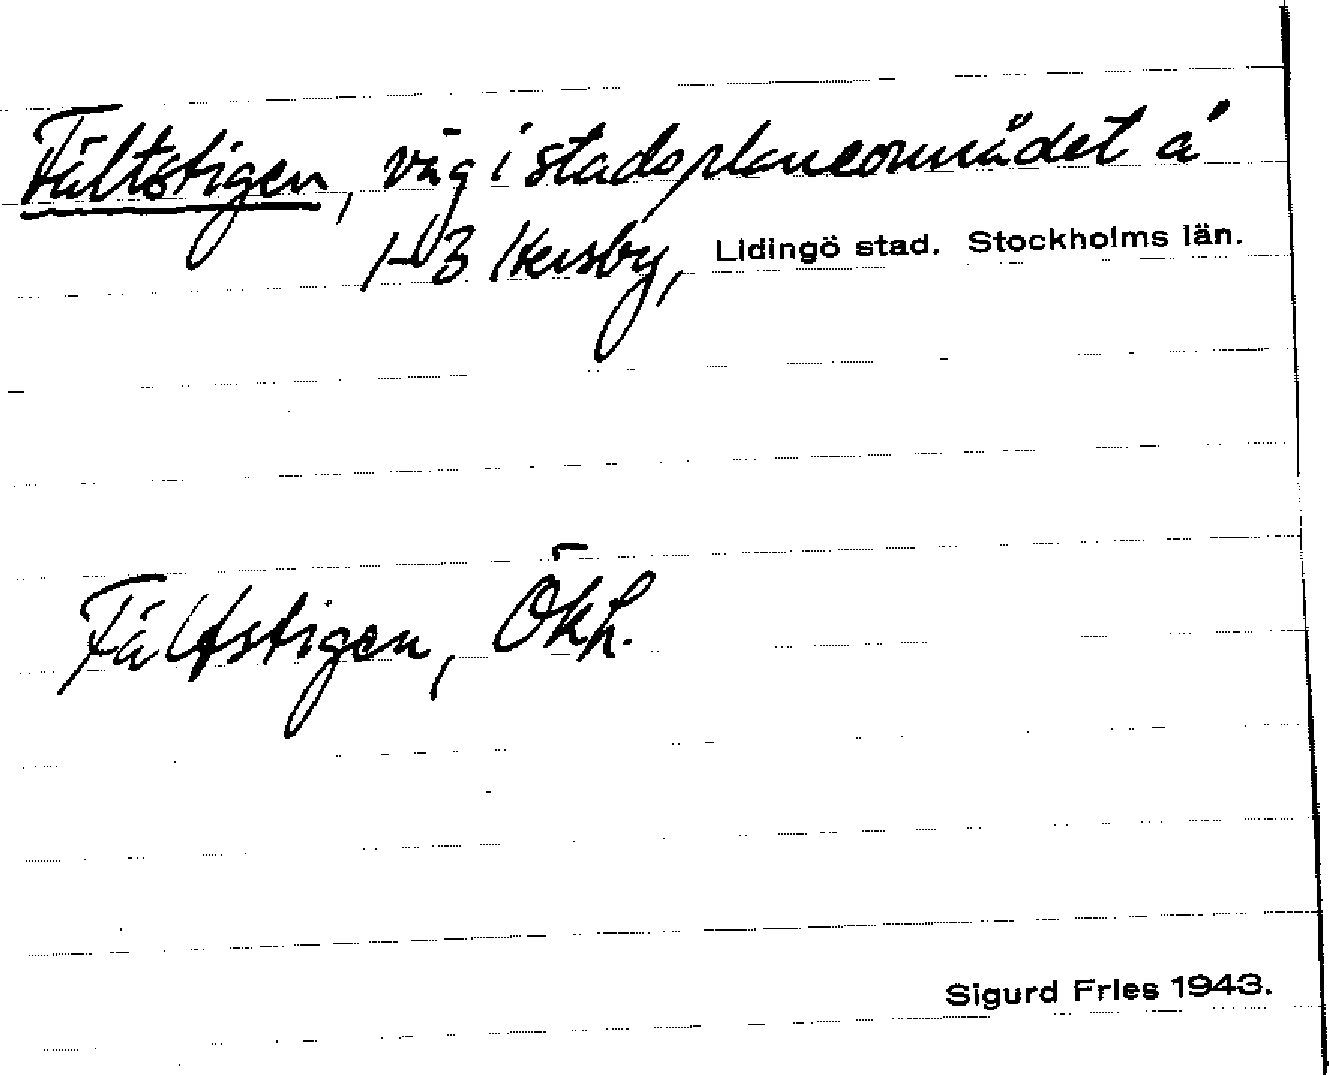 Fältstigen, väg i stadsplaneområdet å
1-3 Hersby, Lidingö stad. Stockholms län.
Fältstigen, Ökh.
Sigurd Fries 1943.